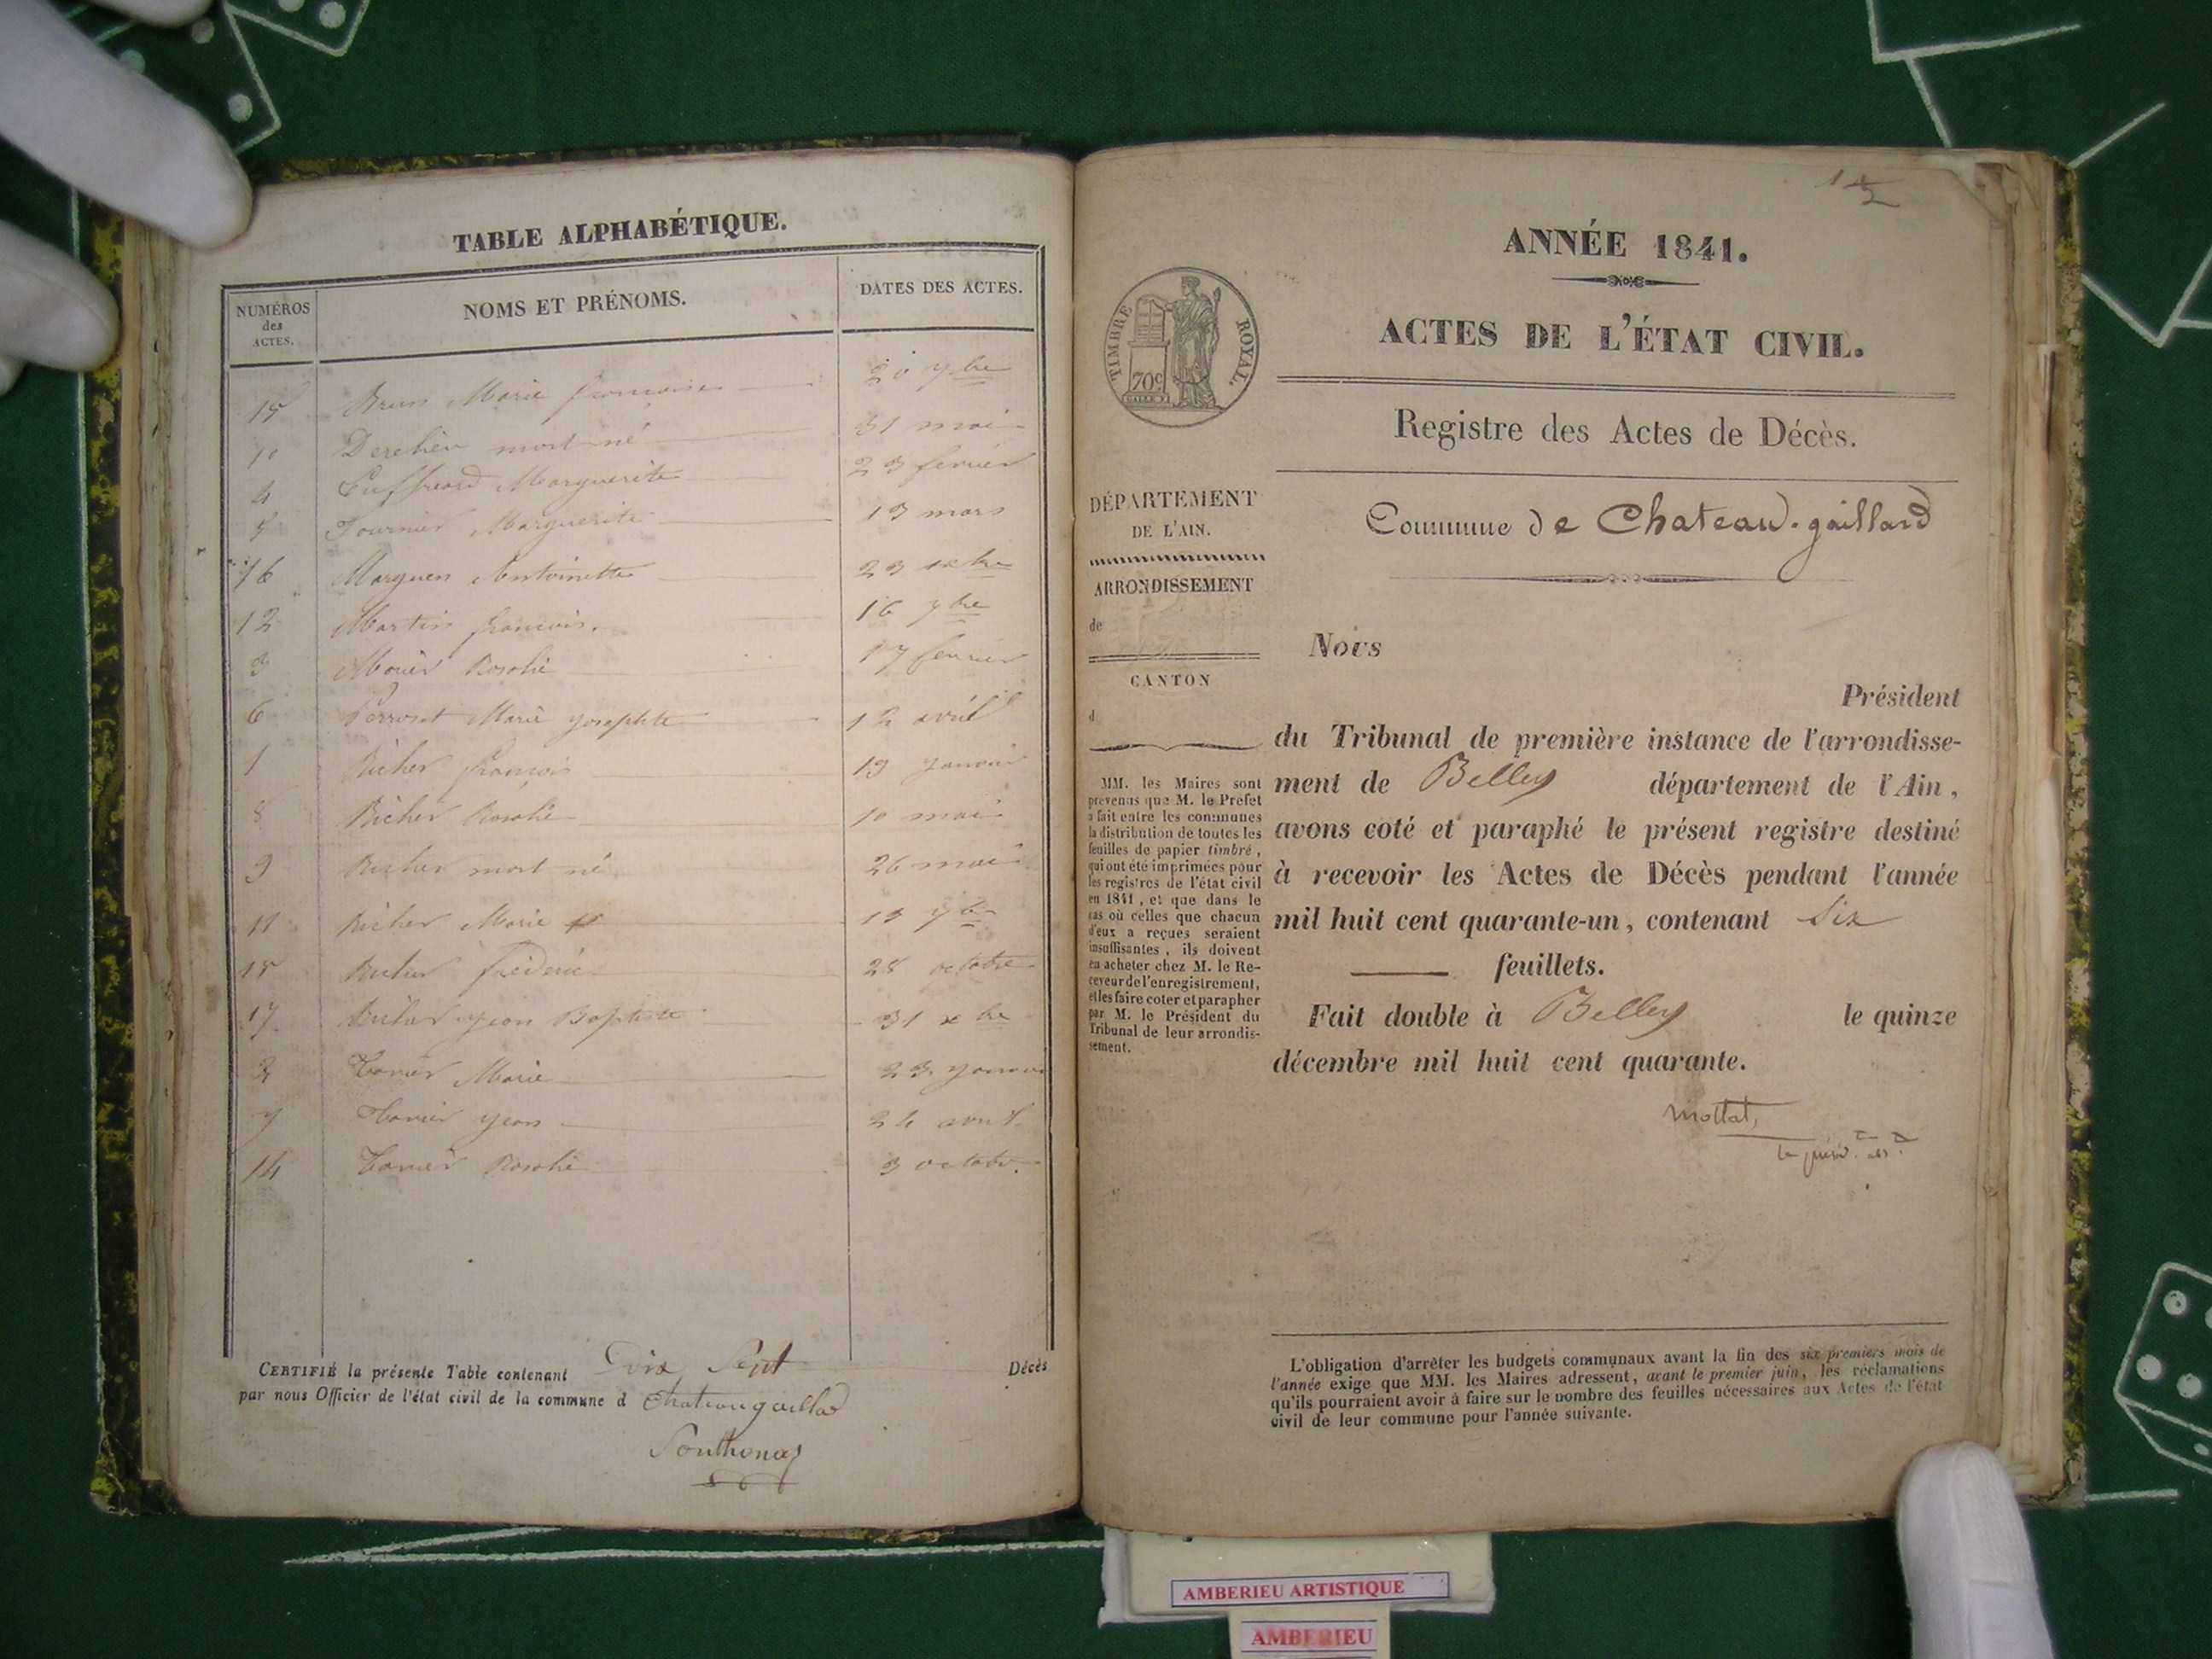 TABLE ALPHABÉTIQUE.
NUMÉROS des ACTES.
NOMS ET PRÉNOMS.
DATES DES ACTES.
Brun Marie françoise 20 7bre
10 mort-né 31 mai
4 Marguerite 23 fevrier
5 Fournier Marguerite 13 mars
16 Antoinette
12 Martin françois. 16 7bre
3 Rosalie 17 fevrier
6 Perroset Marie josephte 12 avril
1 Richer françois 19 janvier
8 Richer Rosalie 10 mai
9 Richer mort né 26 mai
11 Richer Marie 13 7bre
15 Richer frédéric 28 octobre
17 Richer jean Baptiste 31 xbre
2 Marie 23 janvier
7 jean 24 avril
14 Rosalie 3 octobre
CERTIFIÉ la présente Table contenant Dix Sept Décès
par nous Officier de l'état civil de la commune d Chateaugaillard
Southonax
ANNÉE 1841.
ACTES DE L'ÉTAT CIVIL.
TIMBRE ROYAL.
70c
Registre des Actes de Décès.
Commune de Chateau-gaillard
DÉPARTEMENT
DE L'AIN.
ARRONDISSEMENT
de
CANTON
d
MM. les Maires sont
prévenus que M. le Préfet
a fait entre les communes
la distribution de toutes les
feuilles de papier timbré,
qui ont été imprimées pour
les registres de l'état civil
en 1841, et que dans le
cas où celles que chacun
d'eux a reçues seraient
insuffisantes, ils doivent
en acheter chez M. le Re-
ceveur de l'enregistrement,
et les faire coter et parapher
par M. le Président du
Tribunal de leur arrondis-
sement.
Nous
Président
du Tribunal de première instance de l'arrondisse-
ment de Belley département de l'Ain,
avons coté et paraphé le présent registre destiné
à recevoir les Actes de Décès pendant l'année
mil huit cent quarante-un, contenant Six
feuillets.
Fait double à Belley le quinze
décembre mil huit cent quarante.
mottat,
L'obligation d'arrêter les budgets communaux avant la fin des six premiers mois de
l'année exige que MM. les Maires adressent, avant le premier juin, les réclamations
qu'ils pourraient avoir à faire sur le nombre des feuilles nécessaires aux Actes de l'état
civil de leur commune pour l'année suivante.
AMBERIEU ARTISTIQUE
AMBERIEU